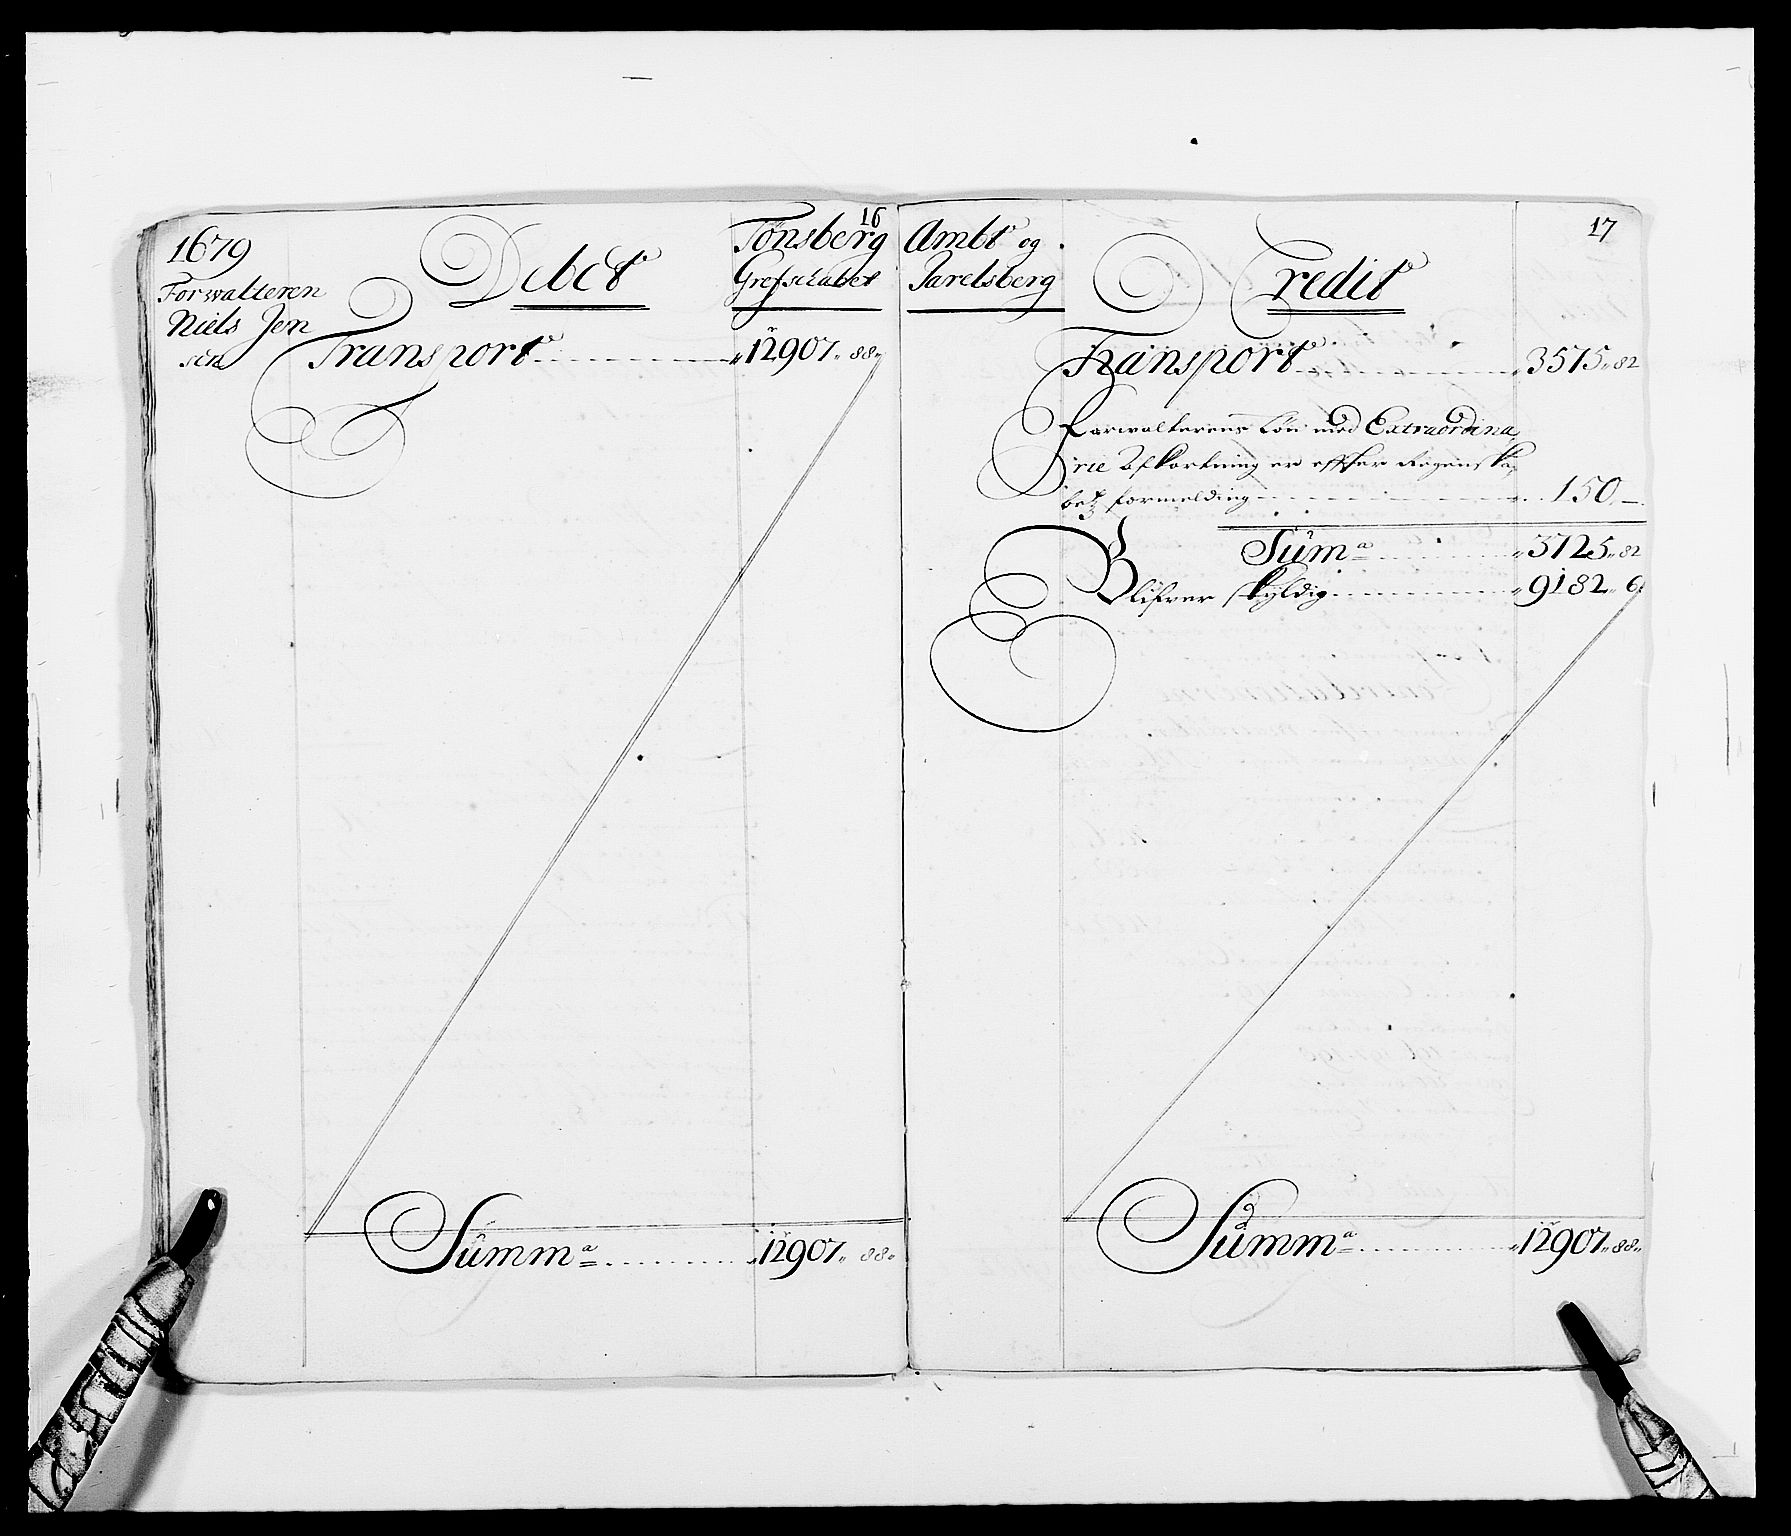 16
1679
Forwalteren
Niels Jen
sen
Debet
Tonsberg
Grefschabet
Transport 12907 88
Summa 12907 88
17
Ambt og
Jarelsberg
Credit
Transport 3575 82
Forwalterens Løn med Extraordina
rie Afkortning er effter Regenska
betz formelding 150
Sum̄a 3725 82
Blifver skyldig 9182 6
Summa 12907 88